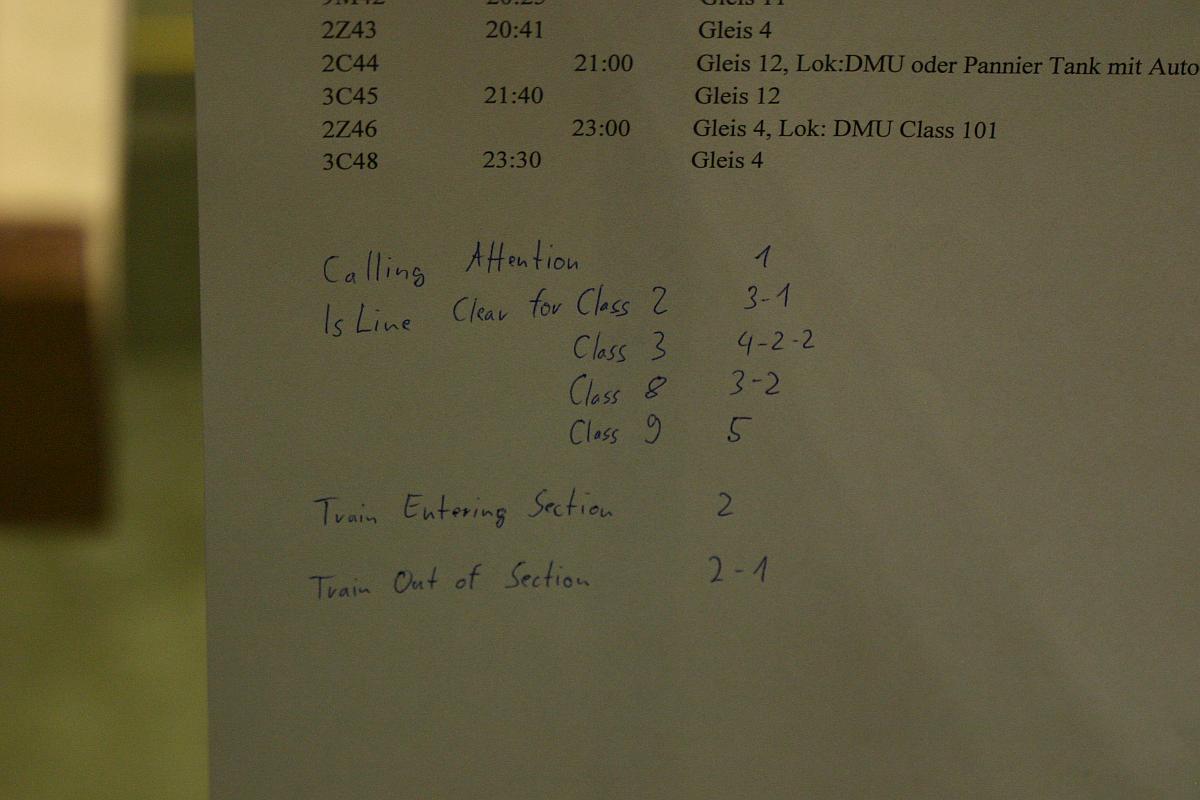 9M42 20:25 Gleis 11
2Z43 20:41 Gleis 4
2C44 21:00 Gleis 12, Lok:DMU oder Pannier Tank mit Auto
3C45 21:40 Gleis 12
2Z46 23:00 Gleis 4, Lok: DMU Class 101
3C48 23:30 Gleis 4
Calling Attention 1
Is Line Clear for Class 2 3-1
Class 3 4-2-2
Class 8 3-2
Class 9 5
Train Entering Section 2
Train Out of Section 2-1